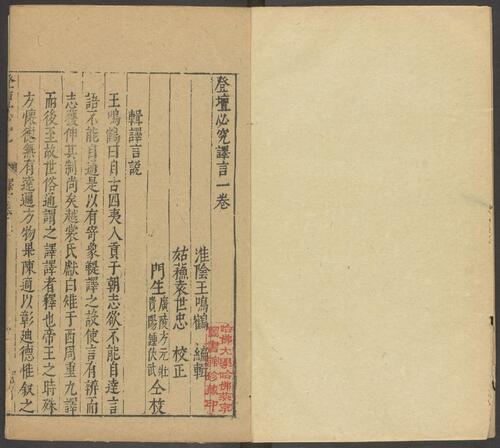 登壇必究譯言一卷
淮陰王鳴鶴 編輯
姑蘓袁世忠 校正
門生
廣陵方元壯
貴陽鍾伏武
仝校
輯譯言說
王鳴鶴曰自古四夷入貢于朝志欲不能自達言
語不能自通是以有寄象鞮譯之設使言有辨而
志獲伸其制尚矣越裳氏獻白雉于西周重九譯
而後至故世俗通謂之譯譯者釋也帝王之時殊
方懷德無有遠邇方物畢陳適以彰迪德惟叙之
哈佛大學哈佛燕京
圖書館珍藏印